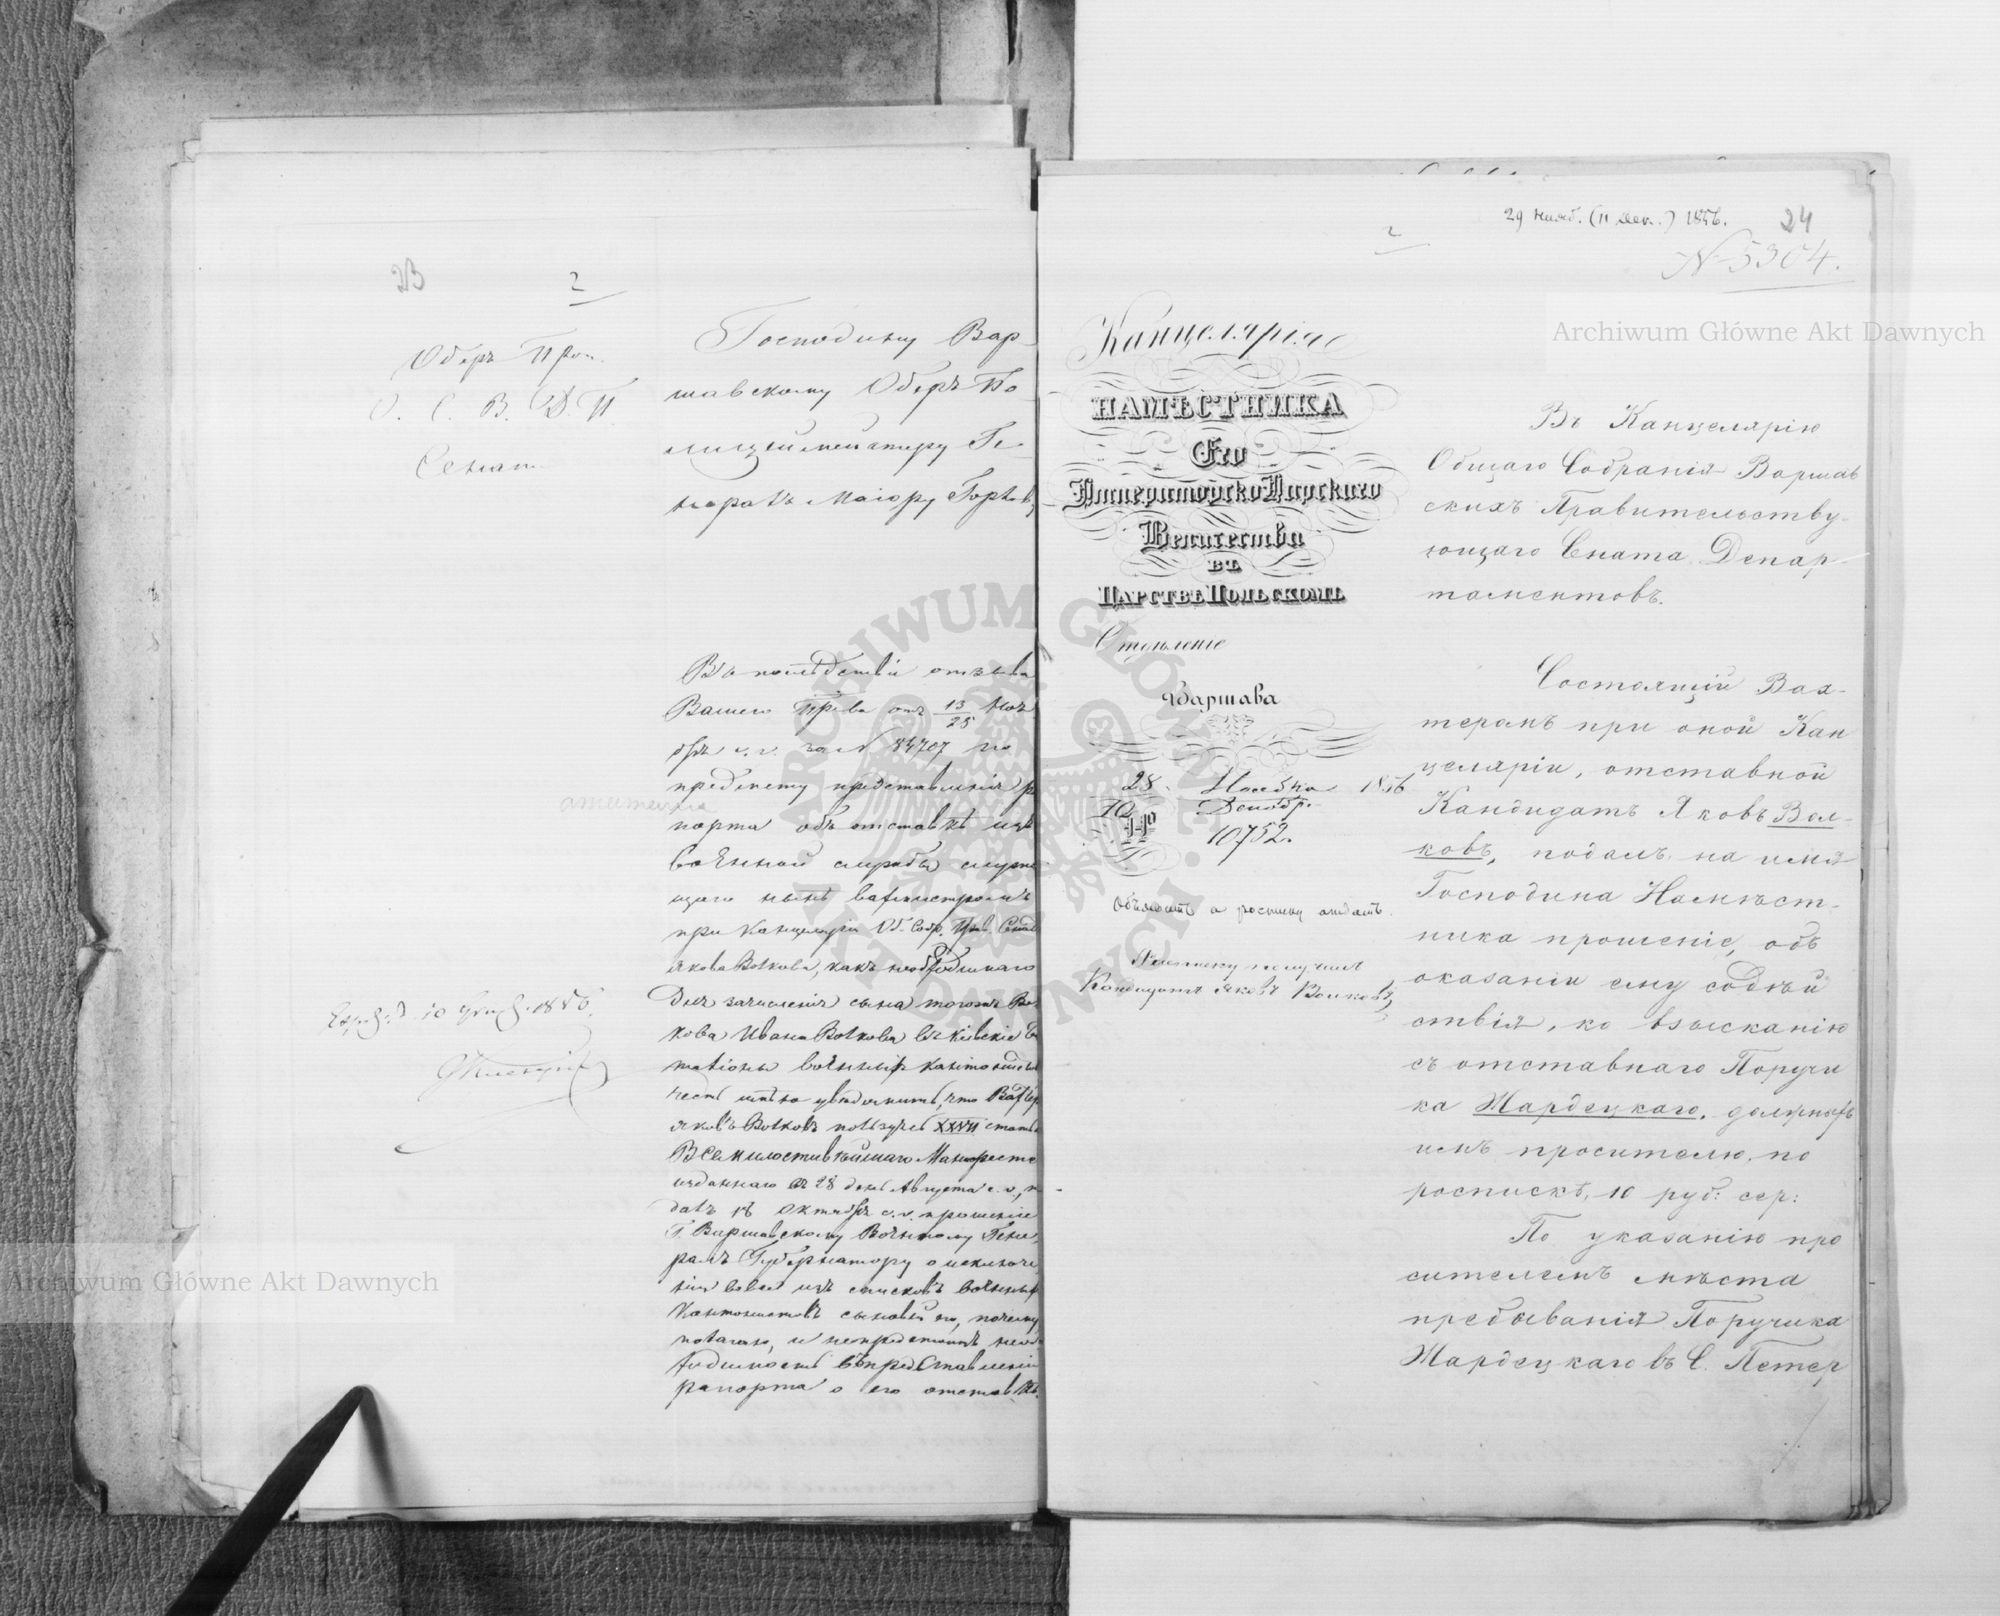 23
2
Оберъ Прок.
О. С. В. Д. П.
Сенат.
Господину Вар
шавскому Оберъ По
лицеймейстеру Ге
нералъ Маіору Горлов
Въ послѣдствіи отзыва
Вашего Прев. отъ 13/25 Ноя
бря с. г. за № 84707 по
предмету представленія р
порта объ отставкѣ изъ
военной службы служа
щаго нынѣ вахмистромъ
при Канцеляріи Об. Собр. Прав. Сена
Якова Волкова, какъ необходимаго
для зачисленія сына того же Во
кова Ивана Волкова въ Кіевскіе б
таліоны военныхъ кантонистовъ
честь имѣю увѣдомить, что Вахтер
Яковъ Волковъ пользуясь XXVII стать
Всемилостивѣйшаго Манифеста
изданнаго въ 26 день Августа с. г., п
далъ 18 Октября с. г. прошеніе
Г. Варшавскому Военному Гене
ралъ Губернатору о исключе
ніи вовсе изъ списковъ военныхъ
Кантонистовъ сыновей его, почему
полагаю, и непредстоитъ необ
ходимости въ представленіи
рапорта о его отставкѣ.
10 1856.
29 Нояб. (11 Дек.) 1856.
24
№ 5304.
2
Канцелярія
НАМѢСТНИКА
Его
Императорско Царскаго
Величества
ВЪ
ЦАРСТВѢ ПОЛЬСКОМЪ
Отдѣленіе
Варшава
28 Ноября 1856
10 Декабр.
№ 10752.
Объявить и росписку отдать.
Росписку получилъ
Кандидатъ Яковъ Волковъ
Въ Канцелярію
Общаго Собранія Варшав
скихъ Правительству-
ющаго Сената Депар-
таментовъ.
Состоящій Вах-
теромъ при оной Кан
целяріи, отставной
Кандидатъ Яковъ Вол-
ковъ, подалъ на имя
Господина Намѣст-
ника прошеніе, объ
оказаніи ему содѣй
ствія, ко взысканію
съ отставнаго Поручи
ка Жардецкаго, должныхъ
имъ просителю, по
роспискѣ, 10 руб: сер:
По указанію про
сителемъ мѣста
пребыванія Поручика
Жардецкаго въ С. Петер
Archiwum Główne Akt Dawnych
Archiwum Główne Akt Dawnych
ARCHIWUM GŁÓWNE AKT DAWNYCH